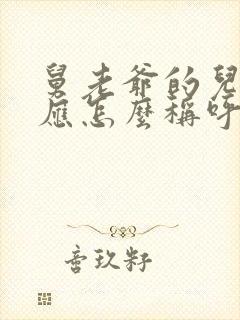 舅老爺的兒
應怎麼稱呼
音玖籽